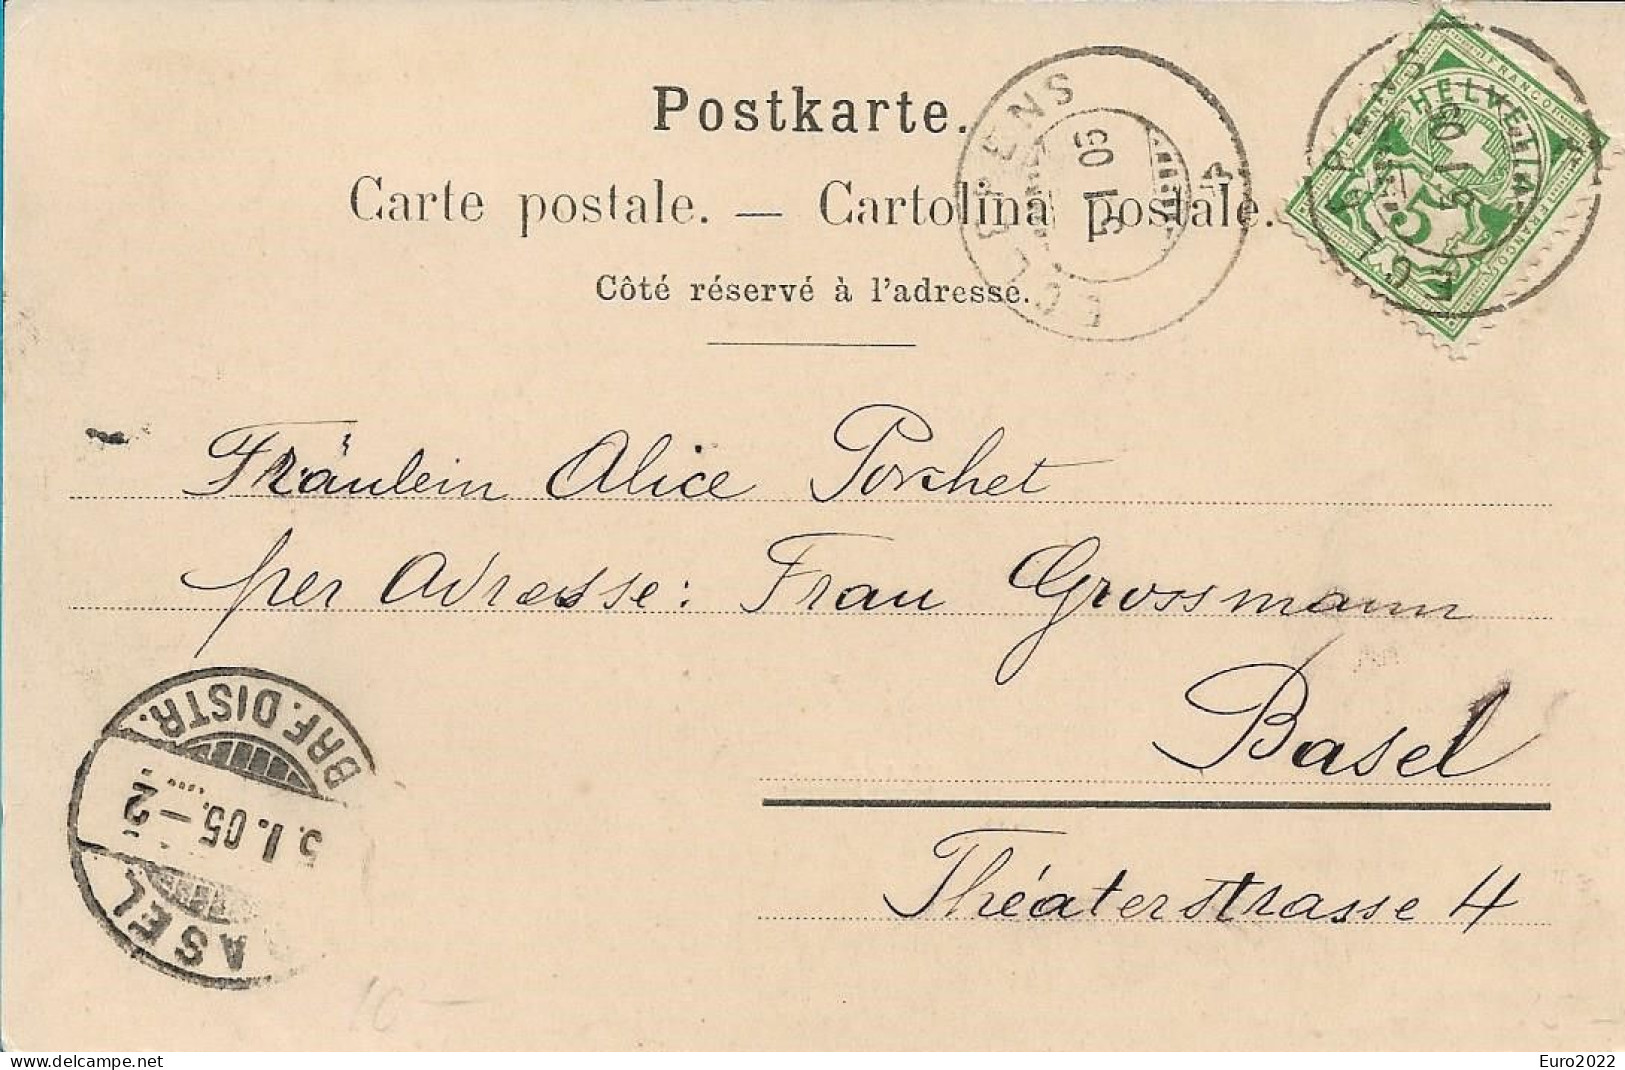 Postkarte.
Carte postale. — Cartolina postale.
Côté réservé à l'adresse.
ECLÉPENS
5 I 05
4
ECLÉPENS
5 I 05
HELVETIA
FRANCO
5
Fräulein Alice Porchet
per Adresse: Frau Grossmann
Basel
Théaterstrasse 4
BRF. DISTR.
5. I. 05. – 2
BASEL
16 –
delcampe.net
Euro2022